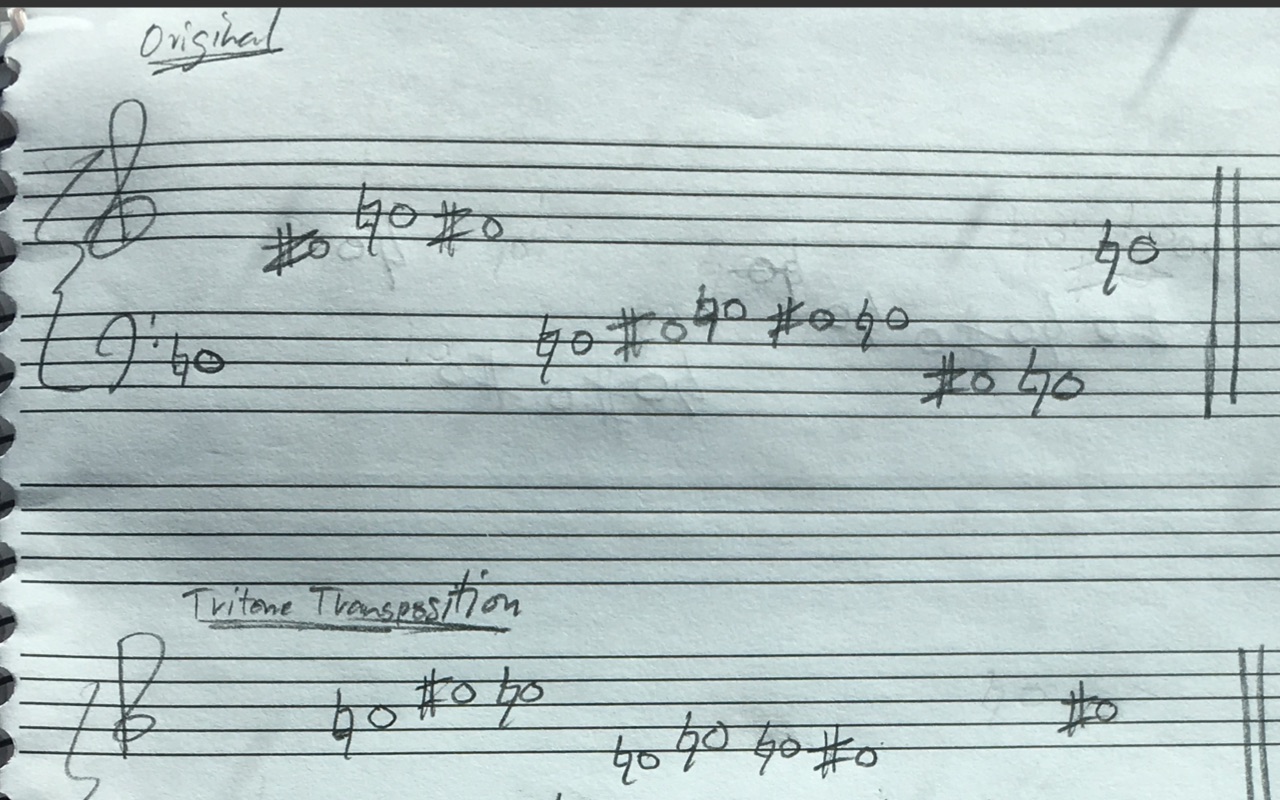 Original
Tritone Transposition